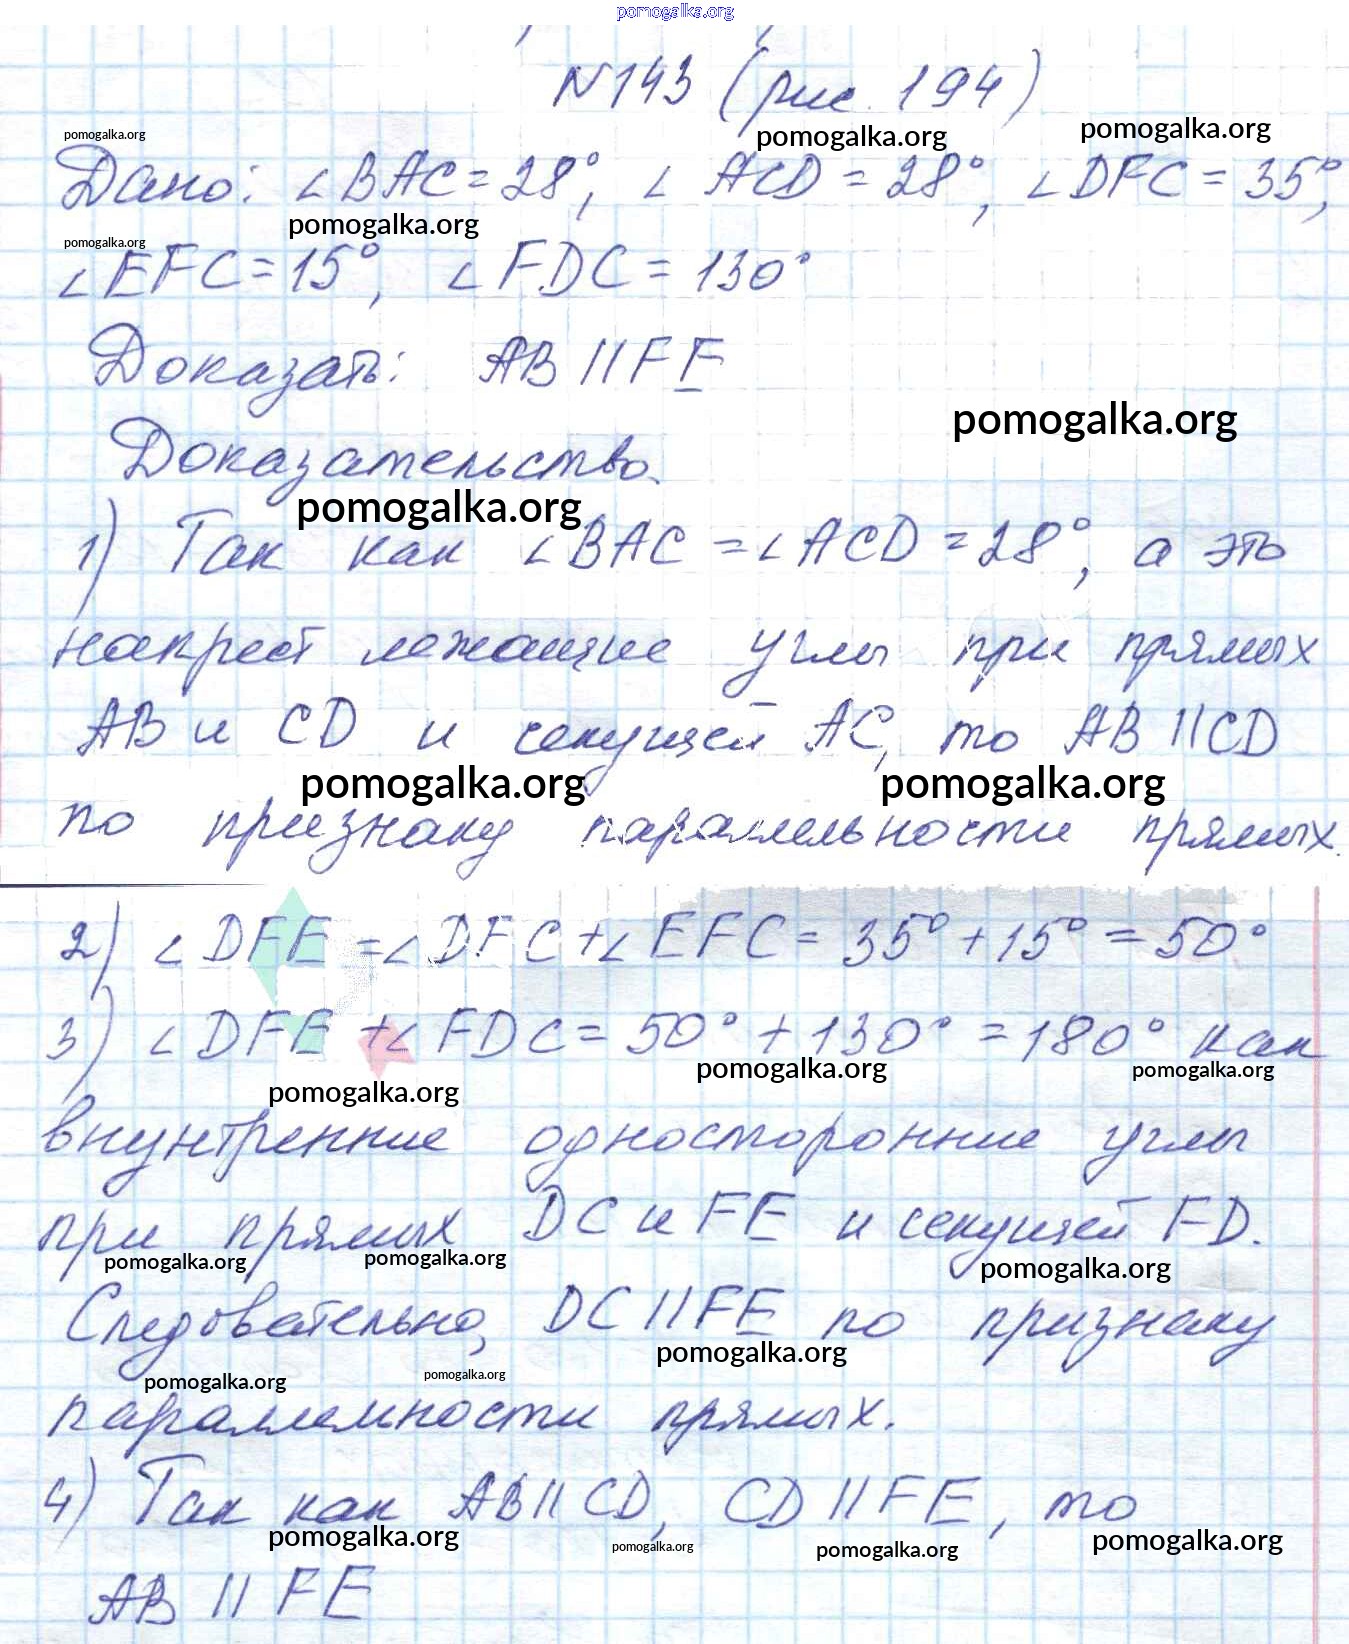 pomogalka.org
N143 (рис. 194)
pomogalka.org pomogalka.org pomogalka.org
Дано: ∠BAC = 28°, ∠ACD = 28°, ∠DFC = 35°,
pomogalka.org
pomogalka.org
∠EFC = 15°, ∠FDC = 130°
Доказать: AB || FE
pomogalka.org
Доказательство.
pomogalka.org
1) Так как ∠BAC = ∠ACD = 28°, а это
накрест лежащие углы при прямых
AB и CD и секущей AC, то AB || CD
pomogalka.org pomogalka.org
по признаку параллельности прямых.
2) ∠DFE = ∠DFC + ∠EFC = 35° + 15° = 50°
3) ∠DFE + ∠FDC = 50° + 130° = 180° как
pomogalka.org pomogalka.org pomogalka.org
внутренние односторонние углы
при прямых DC и FE и секущей FD.
pomogalka.org pomogalka.org pomogalka.org
Следовательно, DC || FE по признаку
pomogalka.org
pomogalka.org pomogalka.org
параллельности прямых.
4) Так как AB || CD, CD || FE, то
pomogalka.org pomogalka.org pomogalka.org pomogalka.org
AB || FE